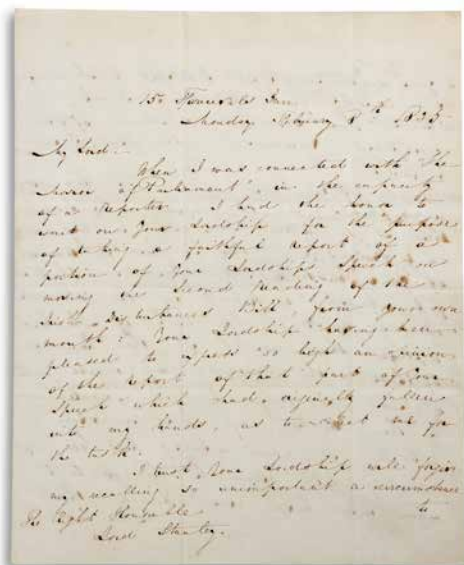 15 Furnivals Inn
Monday February 8th 1836
My Lord.
When I was connected with "The
Mirror of Parliament", in the capacity
of a reporter, I had the honor to
wait on Your Lordship for the purpose
of taking a faithful report of a
portion of Your Lordship's Speech on
moving the Second Reading of the
Irish Disturbances Bill, from your own
mouth; Your Lordship having been
pleased to express so high an opinion
of the report of that part of your
Speech which had originally fallen
into my hands, as to select me for
the task.
I trust Your Lordship will forgive
my recalling so unimportant a circumstance
to
The Right Honorable
Lord Stanley.